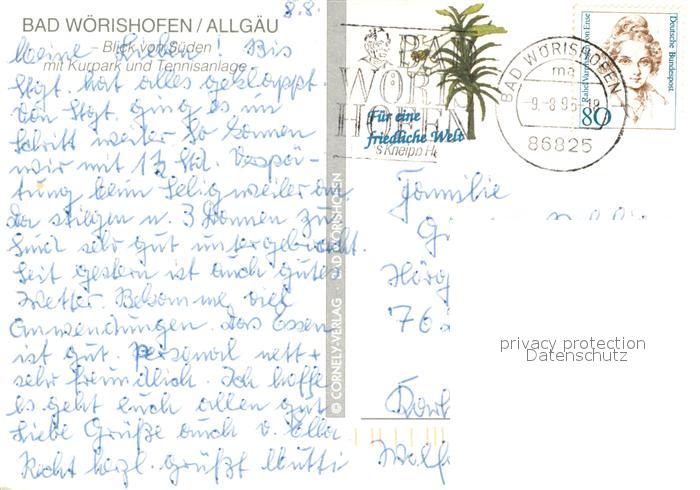 8.8.
BAD WÖRISHOFEN / ALLGÄU
Blick von Süden
mit Kurpark und Tennisanlage
Meine Lieben! Bis
Stgt. hat alles geklappt.
Von Stgt. ging es im
Schritt weiter. So kamen
wir mit 1½ Std. Verspä-
tung beim Seligweiler an
da stiegen n. 3 Damen zu
Sind sehr gut untergebracht.
Seit gestern ist auch gutes
Wetter. Bekomme viel
Anwendungen. Das Essen
ist gut. Personal nett +
sehr freundlich. Ich hoffe
es geht euch allen gut
Liebe Grüße auch v. Ella
Recht herzl. grüßt Mutti
© CORNELY-VERLAG · BAD WÖRISHOFEN
BAD
WÖRIS
HOFEN
s Kneipp H
Für eine
friedliche Welt
BAD WÖRISHOFEN
ma
86825
Rahel Varnhagen von Ense
Deutsche Bundespost
80
Familie
76
privacy protection
Datenschutz